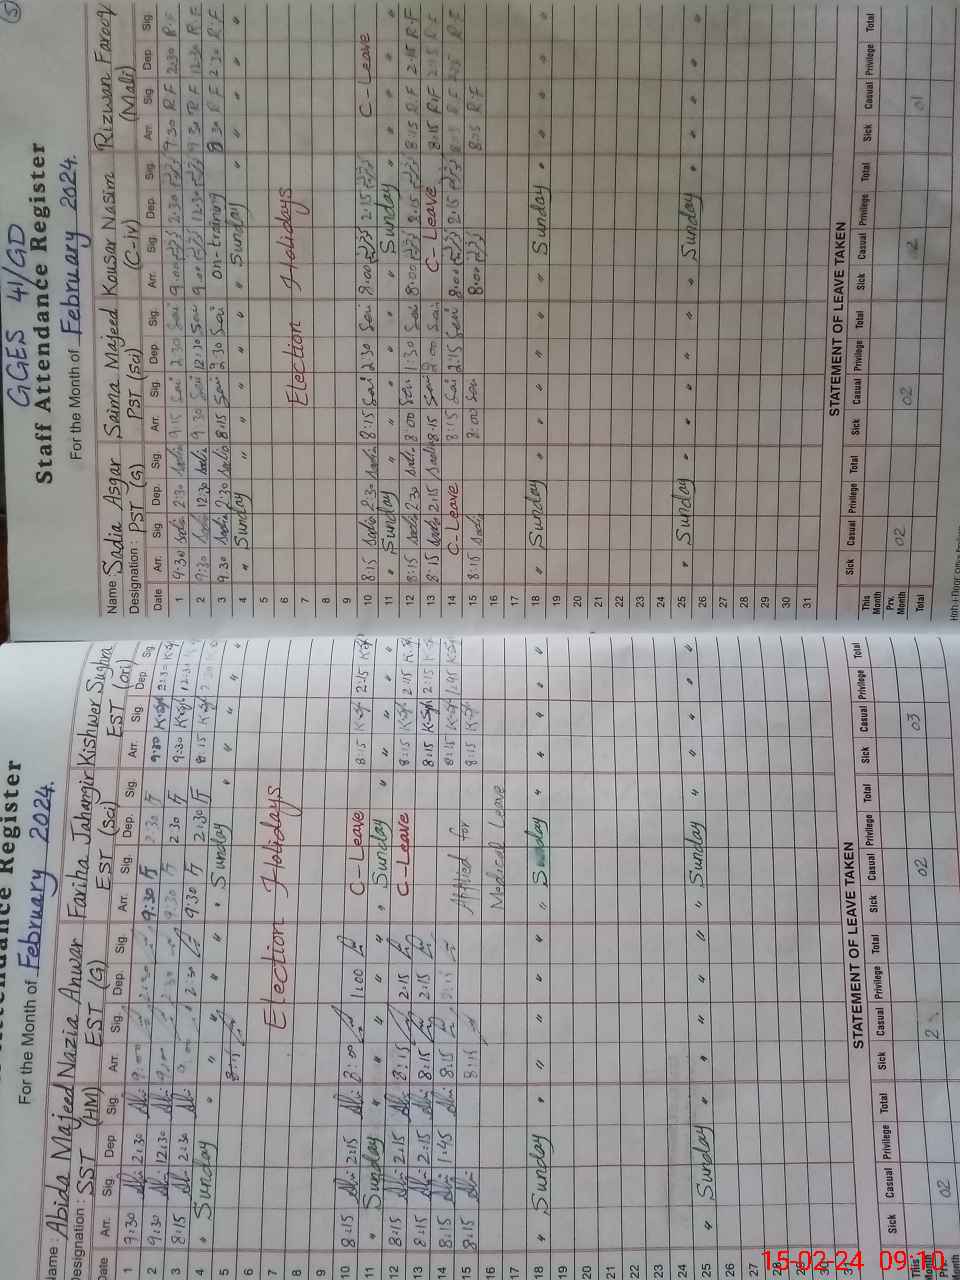 Attendance Register
For the Month of February 2024.
Name : Abida Majeed Nazia Anwar Fariha Jahangir Kishwer Sughra
Designation : SST (HM) EST (G) EST (Sci) EST (ori)
Date Arr. Sig Dep Sig. Arr. Sig. Dep. Sig. Arr. Sig. Dep. Sig. Arr. Sig. Dep Sig.
1 9:30 2:30 9:00 2:30 9:30 2:30 9:30 2:30
2 9:30 12:30 9:00 2:30 9:30 2:30 9:30 12:30
3 8:15 2:30 9:00 2:30 9:30 2:30 8:15
4 " Sunday " " " " " Sunday " " " "
5 8:15
6
7 Election Holidays
8
9
10 8:15 2:15 8:00 1:00 C-Leave 8:15 2:15
11 " Sunday " " " " " Sunday " " "
12 8:15 2:15 8:15 2:15 C-Leave 8:15 2:15
13 8:15 2:15 8:15 2:15 8:15 2:15
14 8:15 1:45 8:15 2:15 8:15 1:45
15 8:15 8:15 Applied for 8:15
16 Medical Leave
17
18 " Sunday " " " " " Sunday " " " "
19
20
21
22
23
24
25 " Sunday " " " " " Sunday " " " "
26
27
28
29
30
31
STATEMENT OF LEAVE TAKEN
Sick Casual Privilege Total Sick Casual Privilege Total Sick Casual Privilege Total Sick Casual Privilege Total
This Month 02 03
Prv. Month 02 2
GGES 41/GD
5
Staff Attendance Register
For the Month of February 2024.
Name Sadia Asgar Saima Majeed Kousar Nasim Rizwan Farooq
Designation : PST (G) PST (Sci) (C-iv) (Mali)
Date Arr. Sig Dep. Sig. Arr. Sig. Dep. Sig. Arr. Sig. Dep. Sig. Arr. Sig. Dep Sig.
1 9:30 Sadia 2:30 Sadia 9:15 Sai 2:30 Sai 9:00 2:30 9:30 R F 2:30 R.F
2 9:30 Sadia 12:30 Sadia 9:30 Sai 12:30 Sai 9:00 12:30 9:30 R F 12:30 R.F
3 9:30 Sadia 2:30 Sadia 8:15 Sai 2:30 Sai on-training 8:30 R F 2:30 R.F
4 " Sunday " " " " " Sunday " " " "
5
6
7 Election Holidays
8
9
10 8:15 Sadia 2:30 Sadia 8:15 Sai 2:30 Sai 8:00 2:15 C-Leave
11 " Sunday " " " " " Sunday " " "
12 8:15 Sadia 2:30 Sadia 8:00 Sai 1:30 Sai 8:00 2:15 8:15 R F 2:15 R.F
13 8:15 Sadia 2:15 Sadia 8:15 Sai 2:00 Sai C-Leave 8:15 R.F 2:15 R.F
14 C-Leave 8:15 Sai 2:15 Sai 8:00 2:15 8:15 R F 2:15 R.F
15 8:15 Sadia 8:00 Sai 8:00 8:15 R.F
16
17
18 " Sunday " " " " " Sunday " " " "
19
20
21
22
23
24
25 " Sunday " " " " " Sunday " " " "
26
27
28
29
30
31
STATEMENT OF LEAVE TAKEN
Sick Casual Privilege Total Sick Casual Privilege Total Sick Casual Privilege Total Sick Casual Privilege Total
This Month
Prv. Month 02 02 2 01
Total
15-02-24 09:10